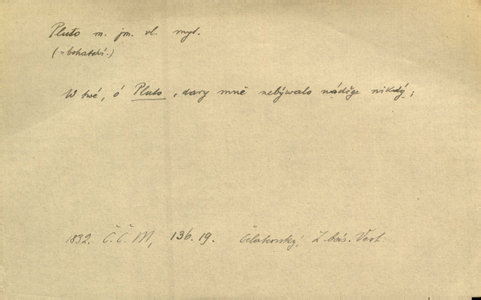 Pluto m. jm. vl. myt.
(= bohatství.)
W twé, ó Pluto, dary mně nebýwalo náděge nikdý;
1832. Č. Č. M, 136. 19. Čelakovský, Z bás. Vest.